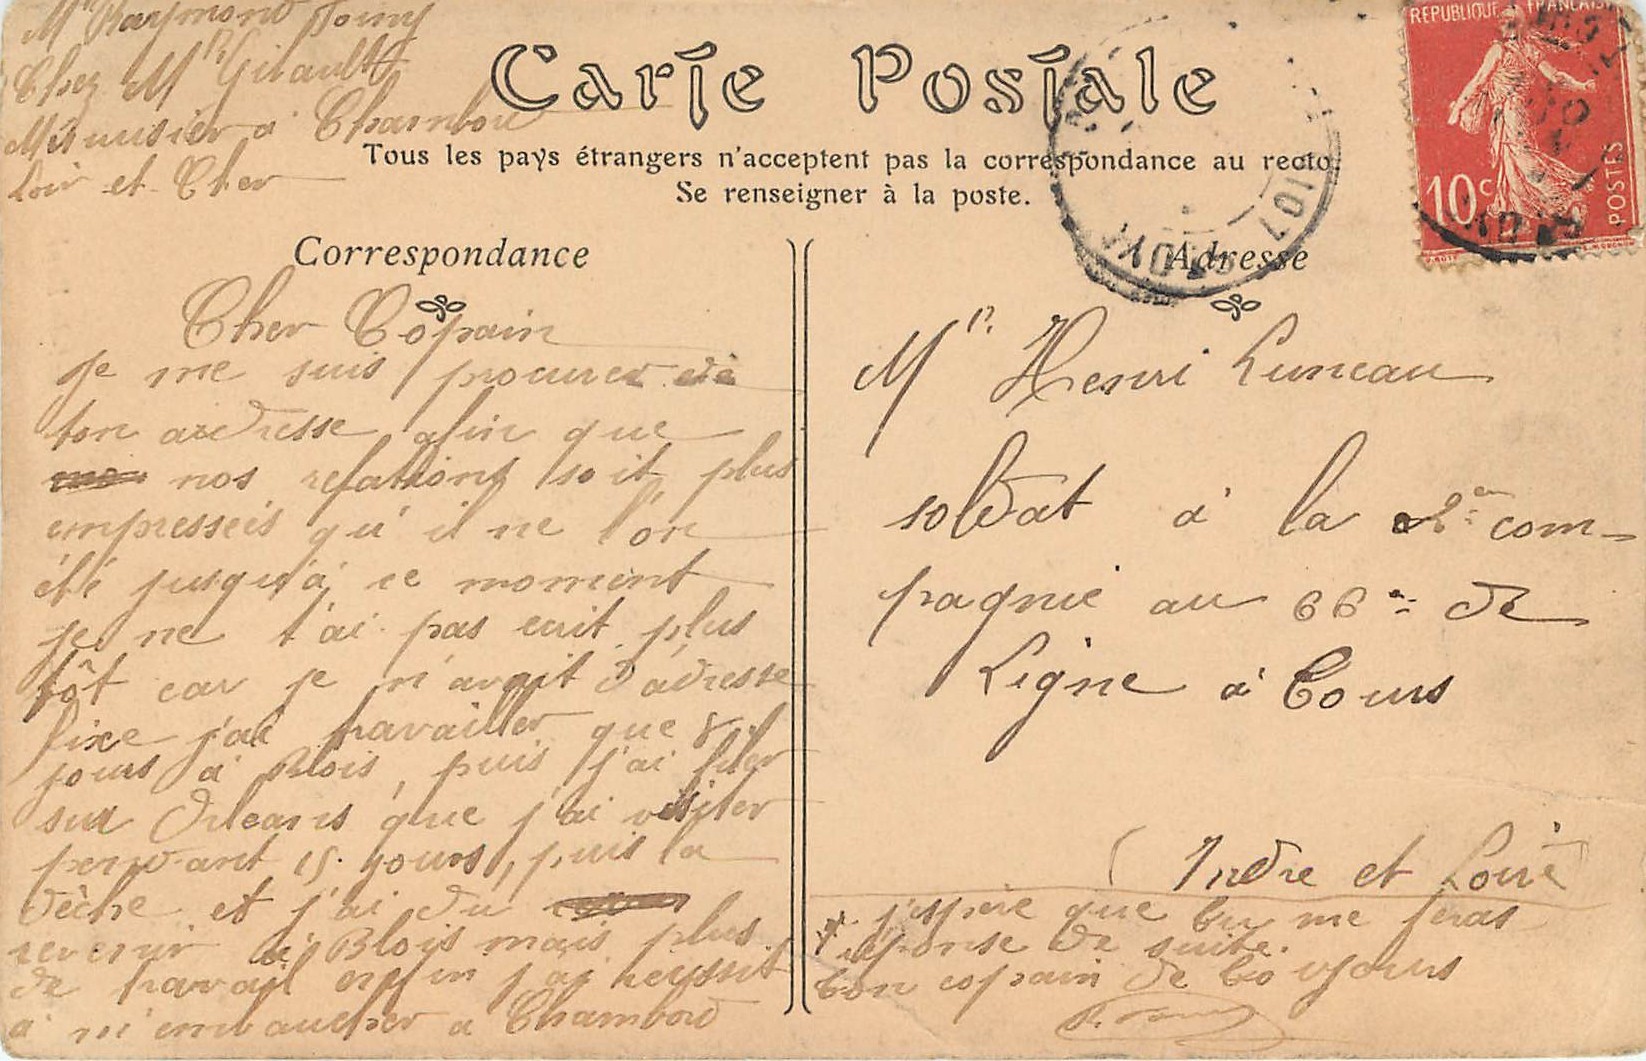 Mr Raymond
Chez Mr Girault
Menuisier à Chambord
Loir et Cher
Carte Postale
Tous les pays étrangers n'acceptent pas la correspondance au recto
Se renseigner à la poste.
Correspondance
Cher Copain
je me suis procurer
ton adresse afin que
nos relations soit plus
empresseés qu'il ne l'on
été jusqu'à ce moment
je ne t'ai pas ecrit plus
tôt car je n'avait d'adresse
fixe j'ai travailler que 8
jours à Blois, puis j'ai filer
sur Orleans que j'ai visiter
pendant 15 jours, puis la
dèche et j'ai du
revenir à Blois mais plus
de travail enfin j'ai reussit
a m'embaucher a Chambord
Adresse
Mr Henri Luneau
soldat à la 2e com-
pagnie au 66e de
Ligne à Tours
(Indre et Loire)
j'espere que tu me feras
reponse de suite.
ton copain de toujours
REPUBLIQUE FRANÇAISE
10c
POSTES